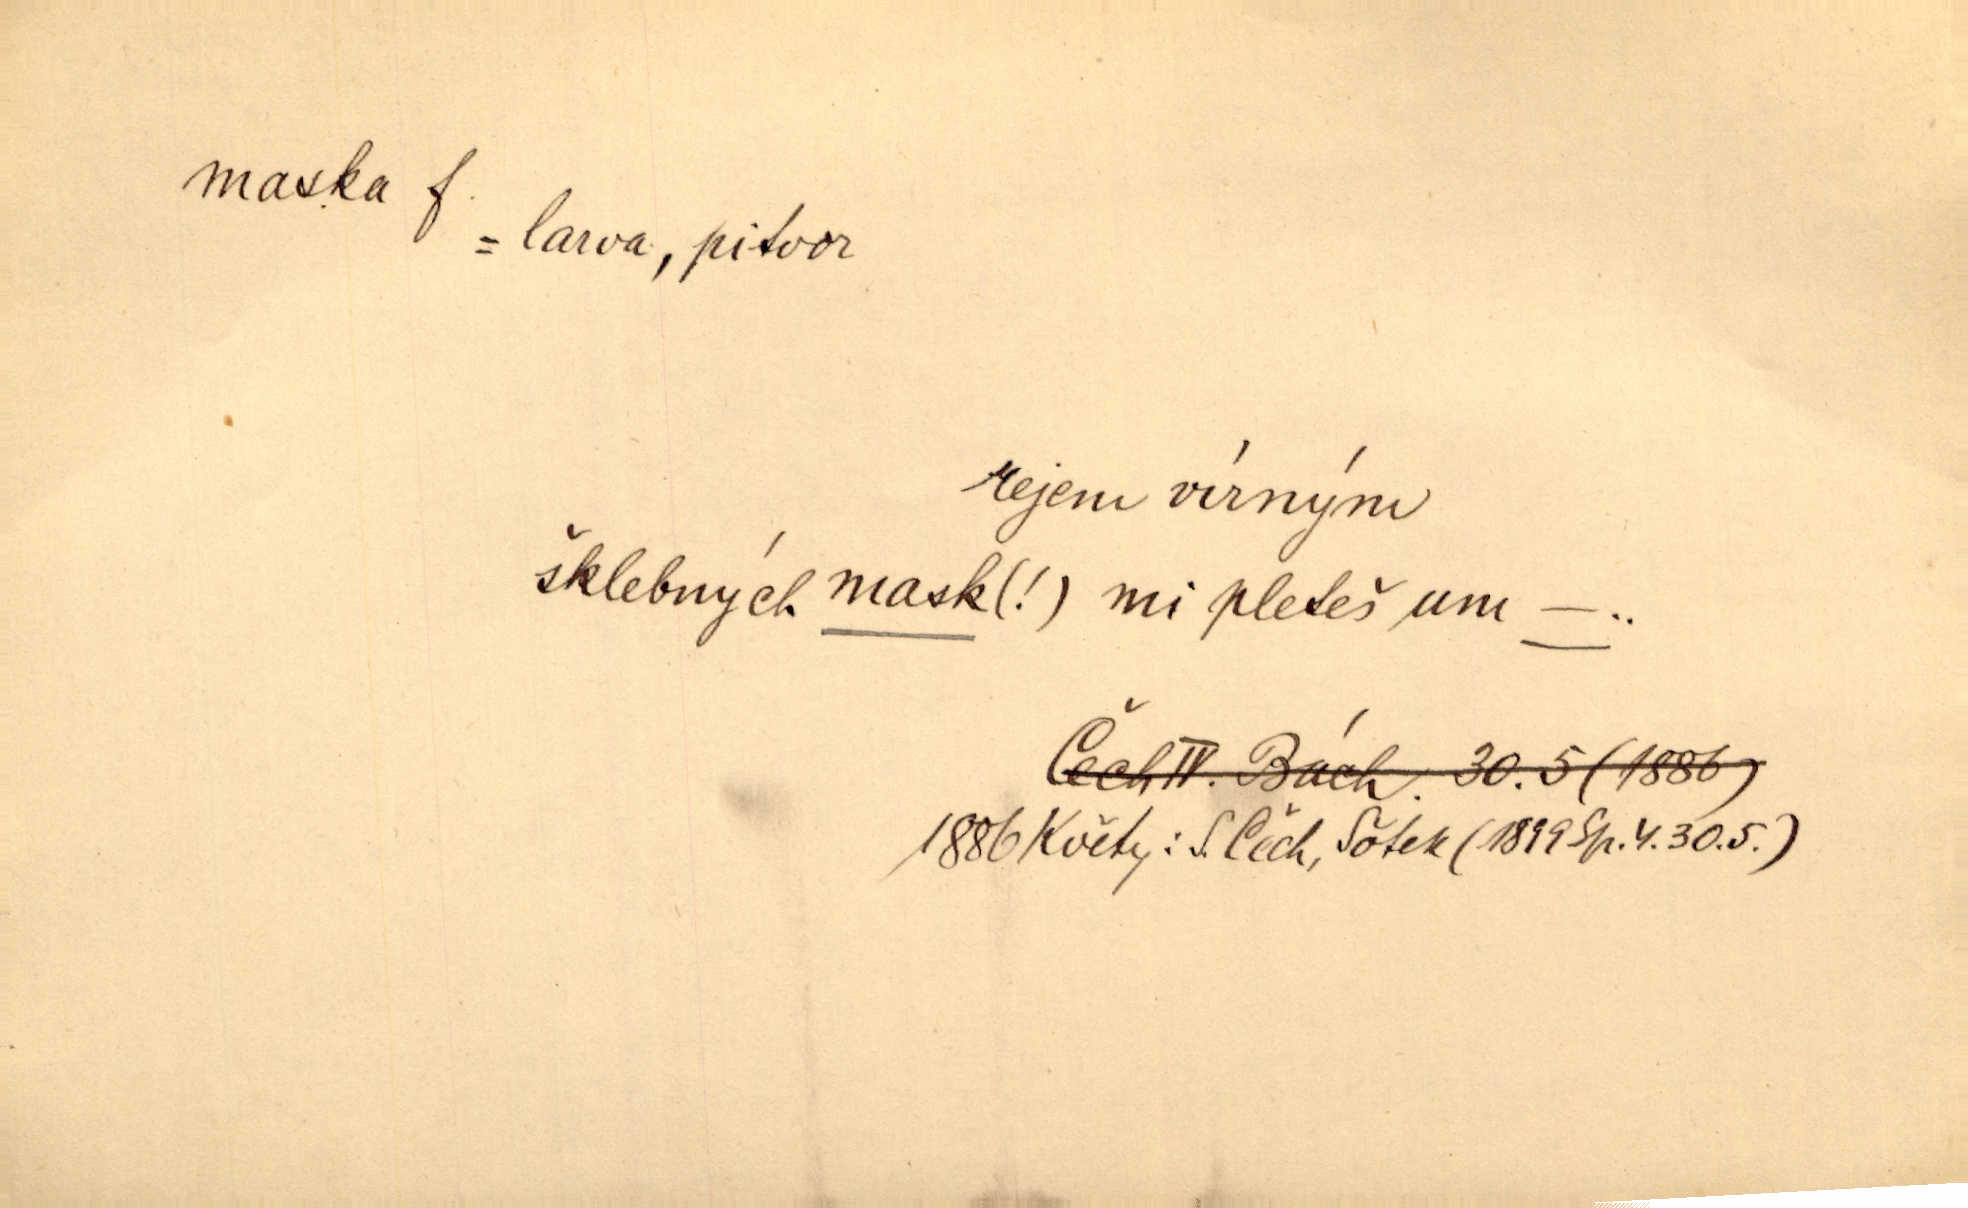 maska f.
= larva, pitvor
rejem vírným
šklebných mask(!) mi pleteš um —..
Čech IV. Bách. 30.5 (1886)
1886 Květy: S. Čech, Šotek (1899 Sp. 4. 30. 5.)